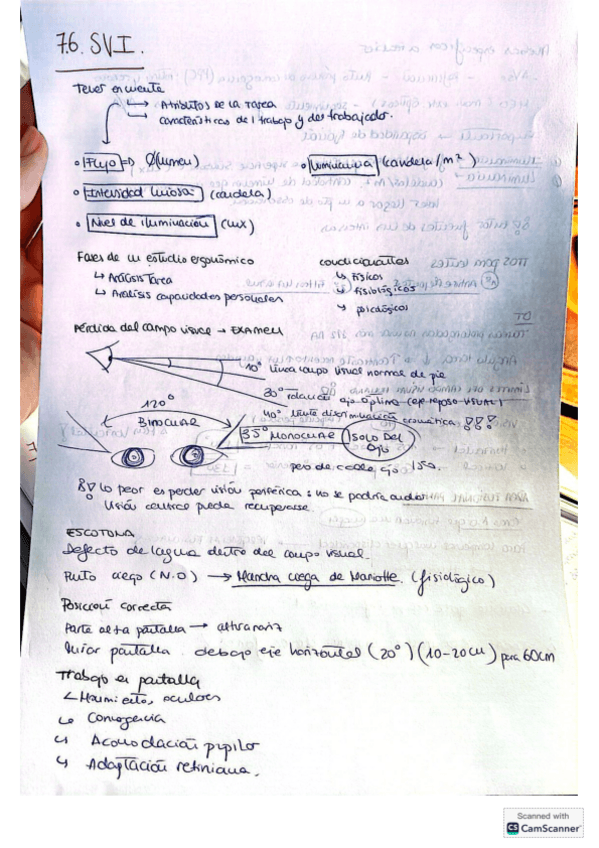 7.6. SVI.
Tener en cuenta
↳ Atributos de la tarea
↳ características del trabajo y del trabajador.
o Flujo => Ø(lumen)
o Luminancia (candela/m²)
o Intensidad luiosa: (candela)
o Nivel de iluminación (lux)
Fases de un estudio ergonómico
↳ Análisis Tarea
↳ Análisis capacidades personales
condicionantes
↳ físicos
↳ fisiológicos
↳ psicológicos
Pérdida del campo visual → EXAMEN
10° línea campo visual normal de pie
30° rotación ojo óptima (eje reposo VISUAL)
40° límite discriminación cromática !!!
120°
BINOCULAR
35° MONOCULAR SOLO DEL OJO
pero de cada ojo 150.
Lo peor es perder visión periférica; no se podría andar
Visión central puede recuperarse.
ESCOTOMA
Defecto de laguna dentro del campo visual.
Punto ciego (N.O) → Mancha ciega de Mariotte. (fisiológico)
Posición correcta
Parte alta pantalla → altura nariz
pantalla debajo eje horizontal (20°) (10-20cm) para 60cm
Trabajo en pantalla
↳ Movimientos oculares
↳ Convergencia
↳ Acomodación pupilar
↳ Adaptación retiniana.
Scanned with
CS CamScanner